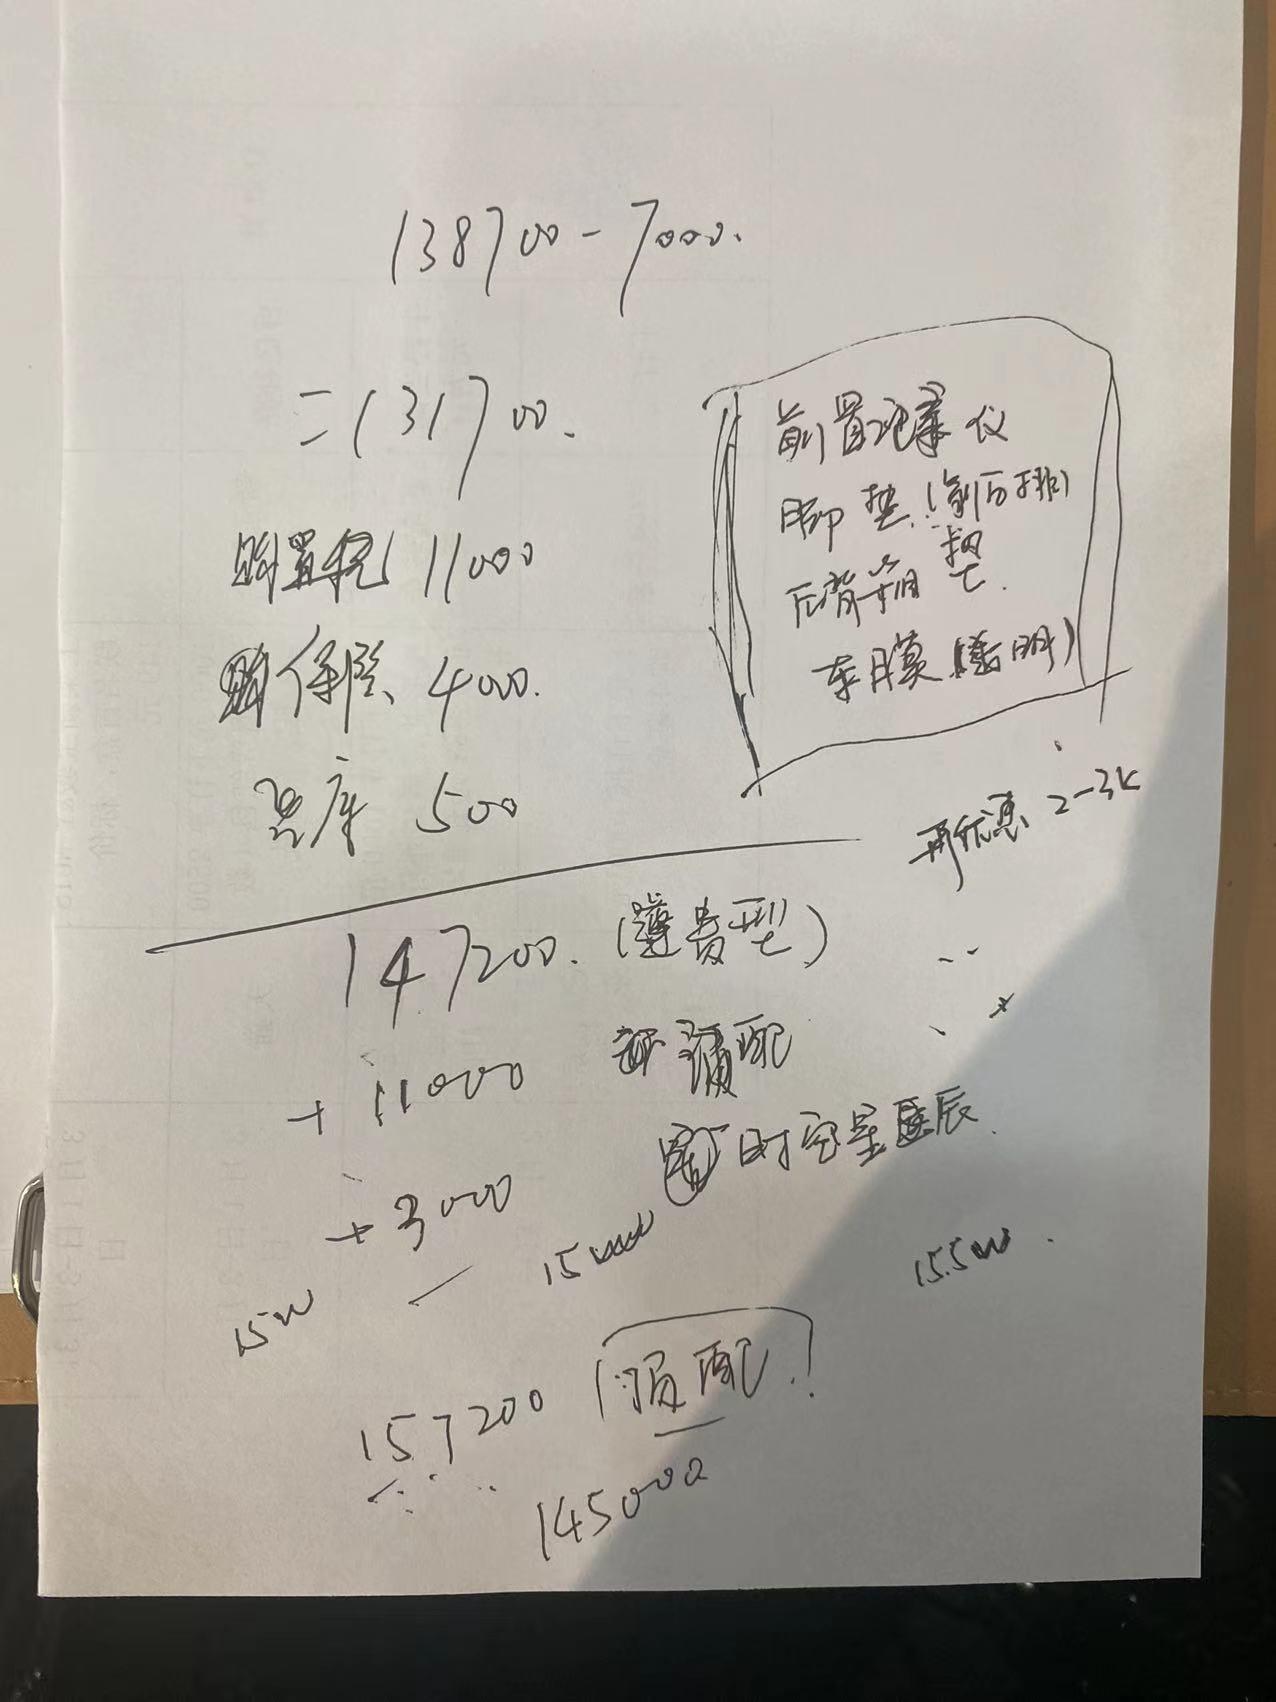 138700-7000.
=131700.
购置税 11000
保险 4000.
出库 500
前置记录仪
脚垫(前后排)
后背箱垫.
车膜(透明)
再优惠 2-3K
147200. (尊贵型)
+11000 顶配
+3000 时空星辰
15W
15.5W.
157200 (顶配)
145000